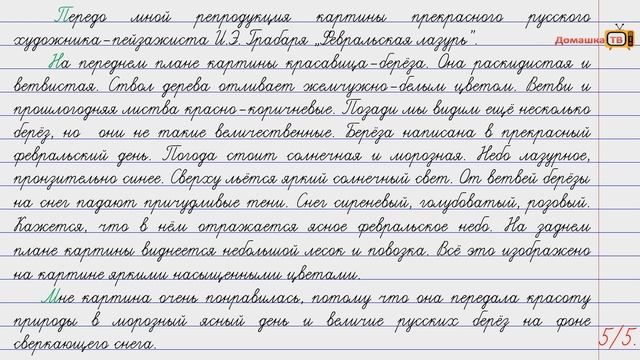 Передо мной репродукция картины прекрасного русского
художника-пейзажиста И.Э. Грабаря „Февральская лазурь".
На переднем плане картины красавица-берёза. Она раскидистая и
ветвистая. Ствол дерева отливает жемчужно-белым цветом. Ветви и
прошлогодняя листва красно-коричневые. Позади мы видим ещё несколько
берёз, но они не такие величественные. Берёза написана в прекрасный
февральский день. Погода стоит солнечная и морозная. Небо лазурное,
пронзительно синее. Сверху льётся яркий солнечный свет. От ветвей берёзы
на снег падают причудливые тени. Снег сиреневый, голубоватый, розовый.
Кажется, что в нём отражается ясное февральское небо. На заднем
плане картины виднеется небольшой лесок и повозка. Всё это изображено
на картине яркими насыщенными цветами.
Мне картина очень понравилась, потому что она передала красоту
природы в морозный ясный день и величие русских берёз на фоне
сверкающего снега.
Домашка ТВ
5/5.